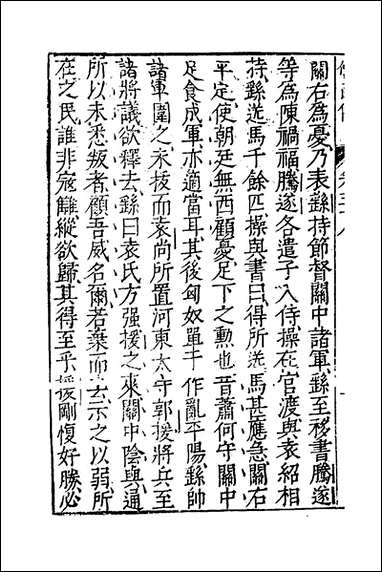 關右為憂乃表繇持節督關中諸軍繇至移書騰遂
等為陳禍福騰遂各遣子入侍操在官渡與袁紹相
持繇送馬千餘匹操與書曰得所送馬甚應急關右
平定使朝廷無西顧憂足下之勲也昔蕭何守關中
足食成軍亦適當耳其後匈奴單于作亂平陽繇帥
諸軍圍之未拔而袁尚所置河東太守郭援將兵至
諸將議欲釋去繇曰袁氏方强援之來關中陰與通
所以未悉叛者顧吾威名爾若棄而去示之以弱所
在之民誰非寇讎縱欲歸其得至乎援剛愎好勝必